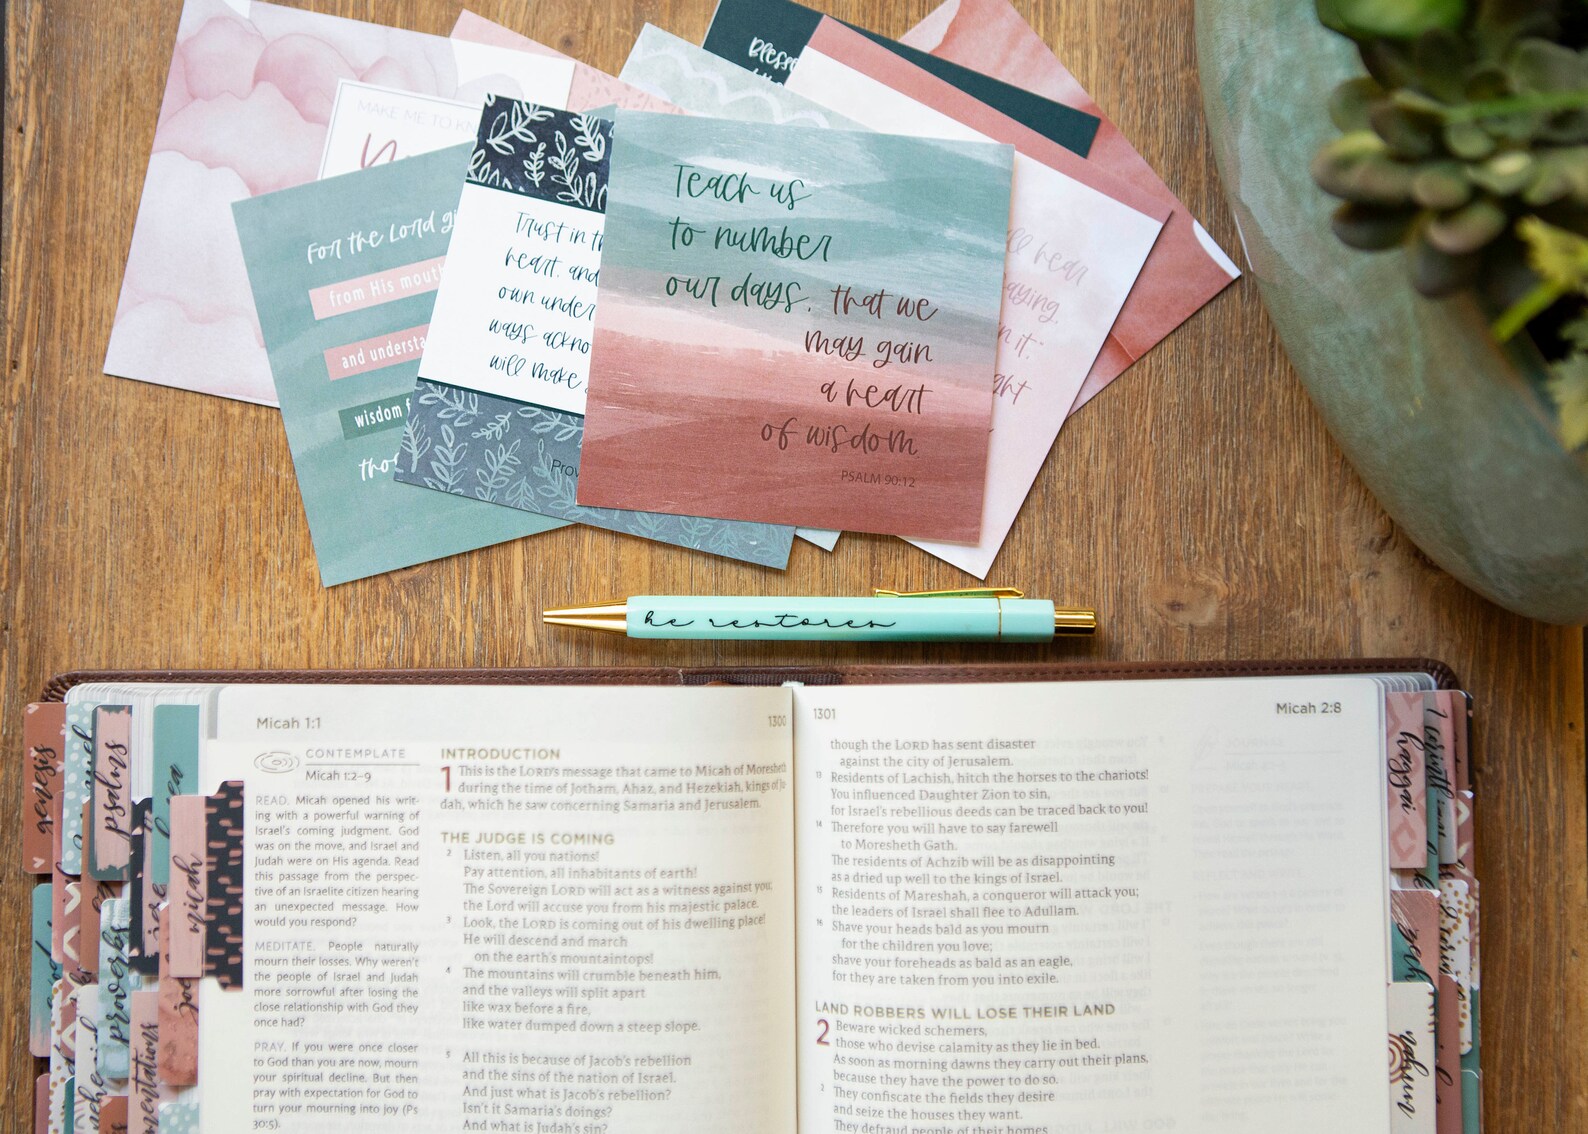 MAKE ME TO
Teach us
to number
our days, that we
may gain
a heart
of wisdom.
PSALM 90:12
For the Lord
from His
and
wisdom
Trust in
heart, and
own
ways
will make
hear
it:"
he restores
Micah 1:1
1300
CONTEMPLATE
Micah 1:2-9
READ. Micah opened his writ-
ing with a powerful warning of
Israel's coming judgment. God
was on the move, and Israel and
Judah were on His agenda. Read
this passage from the perspec-
tive of an Israelite citizen hearing
an unexpected message. How
would you respond?
MEDITATE. People naturally
mourn their losses. Why weren't
the people of Israel and Judah
more sorrowful after losing the
close relationship with God they
once had?
PRAY. If you were once closer
to God than you are now, mourn
your spiritual decline. But then
pray with expectation for God to
turn your mourning into joy (Ps
30:5).
INTRODUCTION
1 This is the LORD's message that came to Micah of Moresheth
during the time of Jotham, Ahaz, and Hezekiah, kings of Ju-
dah, which he saw concerning Samaria and Jerusalem.
THE JUDGE IS COMING
2 Listen, all you nations!
Pay attention, all inhabitants of earth!
The Sovereign LORD will act as a witness against you;
the Lord will accuse you from his majestic palace.
3 Look, the LORD is coming out of his dwelling place!
He will descend and march
on the earth's mountaintops!
4 The mountains will crumble beneath him,
and the valleys will split apart
like wax before a fire,
like water dumped down a steep slope.
5 All this is because of Jacob's rebellion
and the sins of the nation of Israel.
And just what is Jacob's rebellion?
Isn't it Samaria's doings?
And what is Judah's sin?
1301
Micah 2:8
though the LORD has sent disaster
against the city of Jerusalem.
13 Residents of Lachish, hitch the horses to the chariots!
You influenced Daughter Zion to sin,
for Israel's rebellious deeds can be traced back to you!
14 Therefore you will have to say farewell
to Moresheth Gath.
The residents of Achzib will be as disappointing
as a dried up well to the kings of Israel.
15 Residents of Mareshah, a conqueror will attack you;
the leaders of Israel shall flee to Adullam.
16 Shave your heads bald as you mourn
for the children you love;
shave your foreheads as bald as an eagle,
for they are taken from you into exile.
LAND ROBBERS WILL LOSE THEIR LAND
2 Beware wicked schemers,
those who devise calamity as they lie in bed.
As soon as morning dawns they carry out their plans,
because they have the power to do so.
2 They confiscate the fields they desire
and seize the houses they want.
They defraud people of their homes
genesis
psalms
micah
proverbs
haggai
nahum